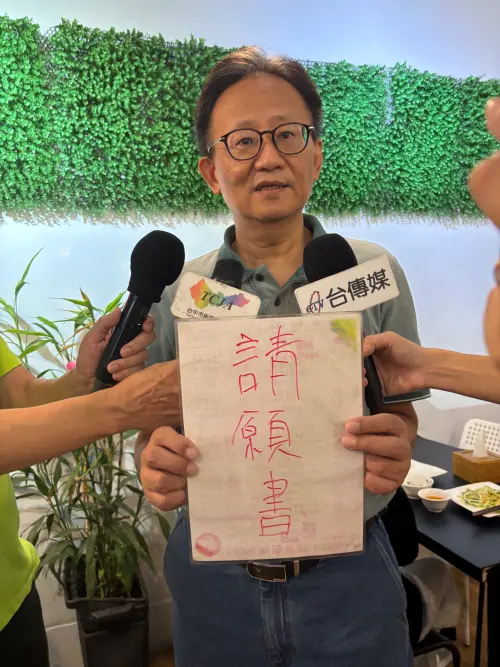 TCDA
台中市新
台傳媒
請
願
書